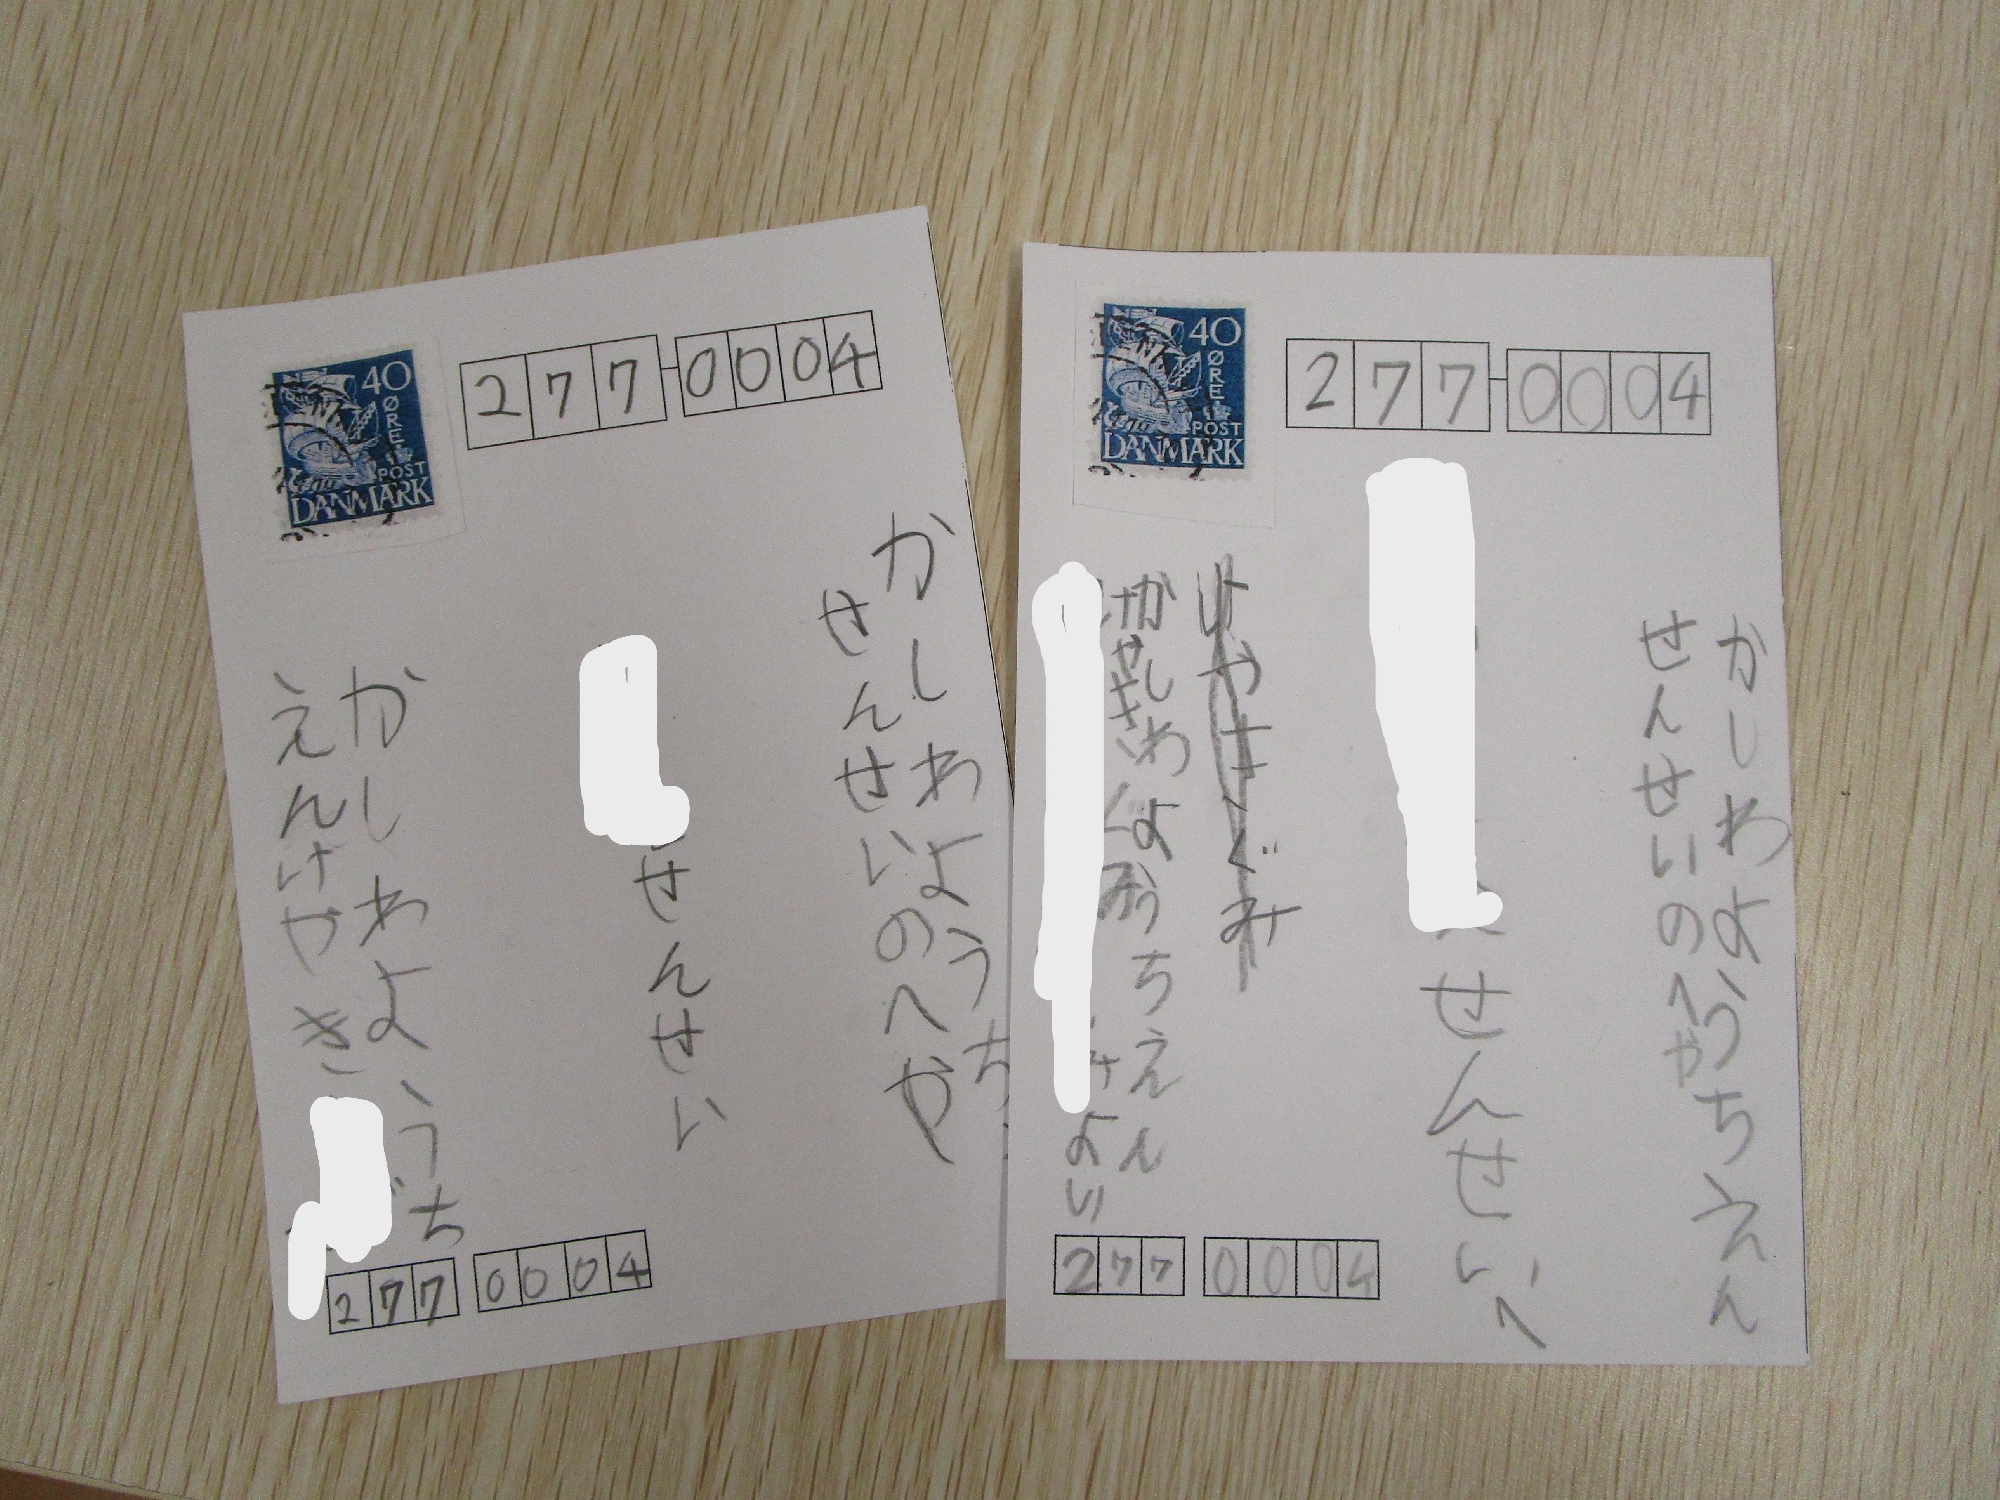 40
ØRE
POST
DANMARK
277-0004
かしわようち
せんせいのへや
せんせい
かしわようち
えんけやき
277 0004
40
ØRE
POST
DANMARK
277-0004
かしわようちえん
せんせいのへや
せんせいへ
けやきぐみ
かしわようちえん
けやきぐみ
より
277 0004